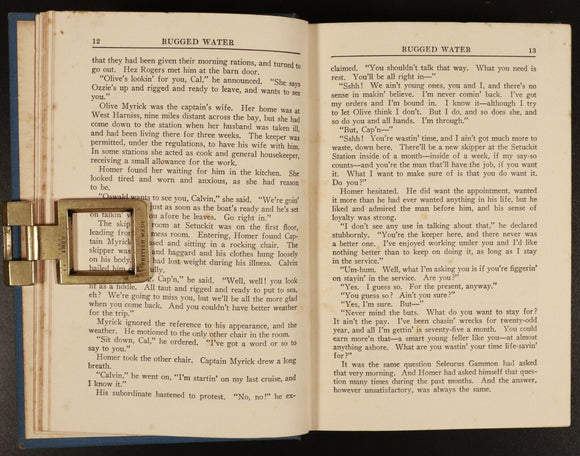 12 RUGGED WATER
that they had been given their morning rations, and turned to
go out. Hez Rogers met him at the barn door.
"Olive's lookin' for you, Cal," he announced. "She says
Ozzie's up and rigged and ready to leave, and wants to see
you."
Olive Myrick was the captain's wife. Her home was at
West Harniss, nine miles distant across the bay, but she had
come down to the station when her husband was taken ill,
and had been living there for three weeks. The keeper was
permitted, under the regulations, to have his wife with him.
In some stations she acted as cook and general housekeeper,
receiving a small allowance for the work.
Homer found her waiting for him in the kitchen. She
looked tired and worn and anxious, as she had reason
to be.
"Oswald wants to see you, Calvin," she said. "We're goin'
just as soon as the boat's ready and he's set
on talkin' you afore he leaves. Go right in."
The skip room at Setuckit was on the first floor,
leading from mess room. Entering, Homer found Cap-
tain Myrick ssed and sitting in a rocking chair. The
skipper was and haggard and his clothes hung loosely
on his body had lost weight during his illness. Calvin
hailed him fully.
Cap'n," he said. "Well, well! you look
fit as a fiddle. All taut and rigged and ready to put to sea,
eh? We're going to miss you, but we'll be all the more glad
when you come back. And you couldn't have better weather
for the trip."
Myrick ignored the reference to his appearance, and the
weather. He motioned to the only other chair in the room.
"Sit down, Cal," he ordered. "I've got a word or so to
say to you."
Homer took the other chair. Captain Myrick drew a long
breath.
"Calvin," he went on, "I'm startin' on my last cruise, and
I know it."
His subordinate hastened to protest. "No, no!" he ex-
RUGGED WATER 13
claimed. "You shouldn't talk that way. What you need is
rest. You'll be all right in—"
"Sshh! We ain't young ones, you and I, and there's no
sense in makin' believe. I'm never comin' back. I've got
my orders and I'm bound in. I know it—although I try
to let Olive think I don't. But I do, and so does she, and
so do you and all hands. I'm through."
"But, Cap'n—"
"Sshh! You're wastin' time, and I ain't got much more to
waste, down here. There'll be a new skipper at the Setuckit
Station inside of a month—inside of a week, if my say-so
counts—and you're the man that'll have the job, if you want
it. What I want to make sure of is that you do want it.
Do you?"
Homer hesitated. He did want the appointment, wanted
it more than he had ever wanted anything in his life, but he
liked and admired the man before him, and his sense of
loyalty was strong.
"I don't see any use in talking about that," he declared
stubbornly. "You're the keeper here, and there never was
a better one. I've enjoyed working under you and I'd like
nothing better than to keep on doing it, as long as I stay
in the service."
"Um-hum. Well, what I'm asking you is if you're figgerin'
on stayin' in the service. Are you?"
"Yes. I guess so. For the present, anyway."
"You guess so? Ain't you sure?"
"Yes, I'm sure. But—"
"Never mind the buts. What do you want to stay for?
It ain't the pay. I've been chasin' wrecks for twenty-odd
year, and all I'm gettin' is seventy-five a month. You could
earn more'n that—a smart young feller like you—at almost
anything ashore. What are you wastin' your time life-savin'
for?"
It was the same question Seleucus Gammon had asked
that very morning. And Homer had asked himself that ques-
tion many times during the past months. And the answer,
however unsatisfactory, was always the same.